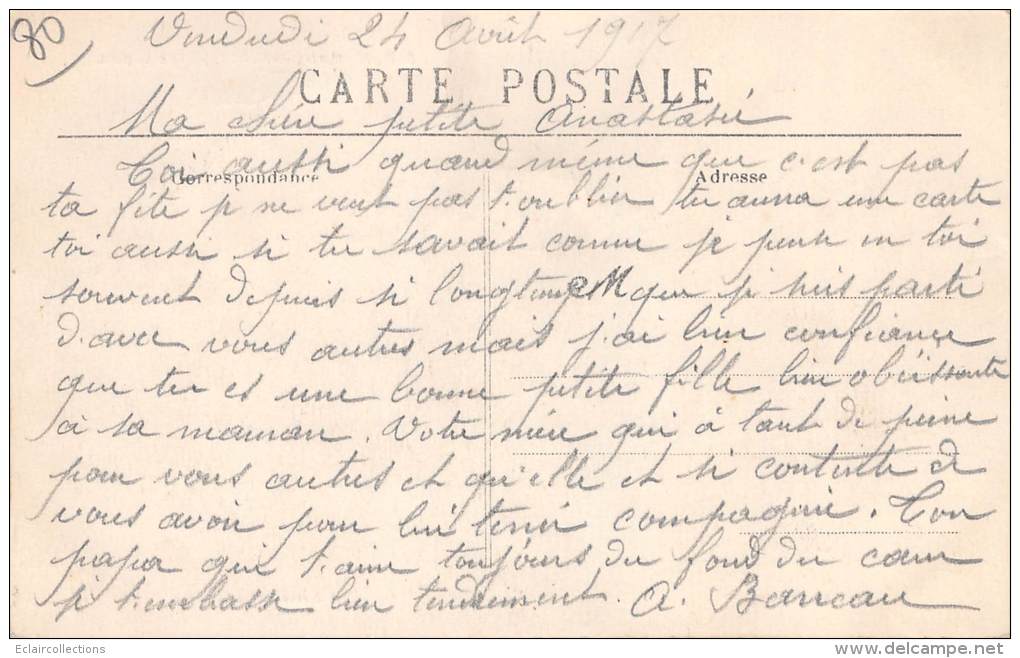 80
Vendredi 24 Août 1917
CARTE POSTALE
Ma chère petite Anastasie
Correspondance
Adresse
Toi aussi quand même que c'est pas
ta fête je ne veut pas t'oublier tu aura une carte
toi aussi si tu savait comme je pense en toi
souvent depuis si longtemps que je suis parti
d'avec vous autres mais j'ai bien confiance
que tu es une bonne petite fille bien obéissante
à sa maman. Votre mère qui à tant de peine
pour vous autres et qu'elle et si contente de
vous avoir pour lui tenir compagnie. Ton
papa qui t'aime toujours du fond du cœur
je t'embasse bien tendrement. A. Barreau
Eclaircollections
www.delcampe.net